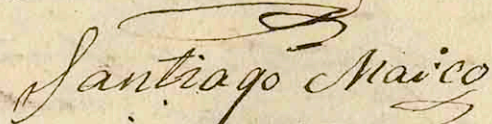 Santiago Maico